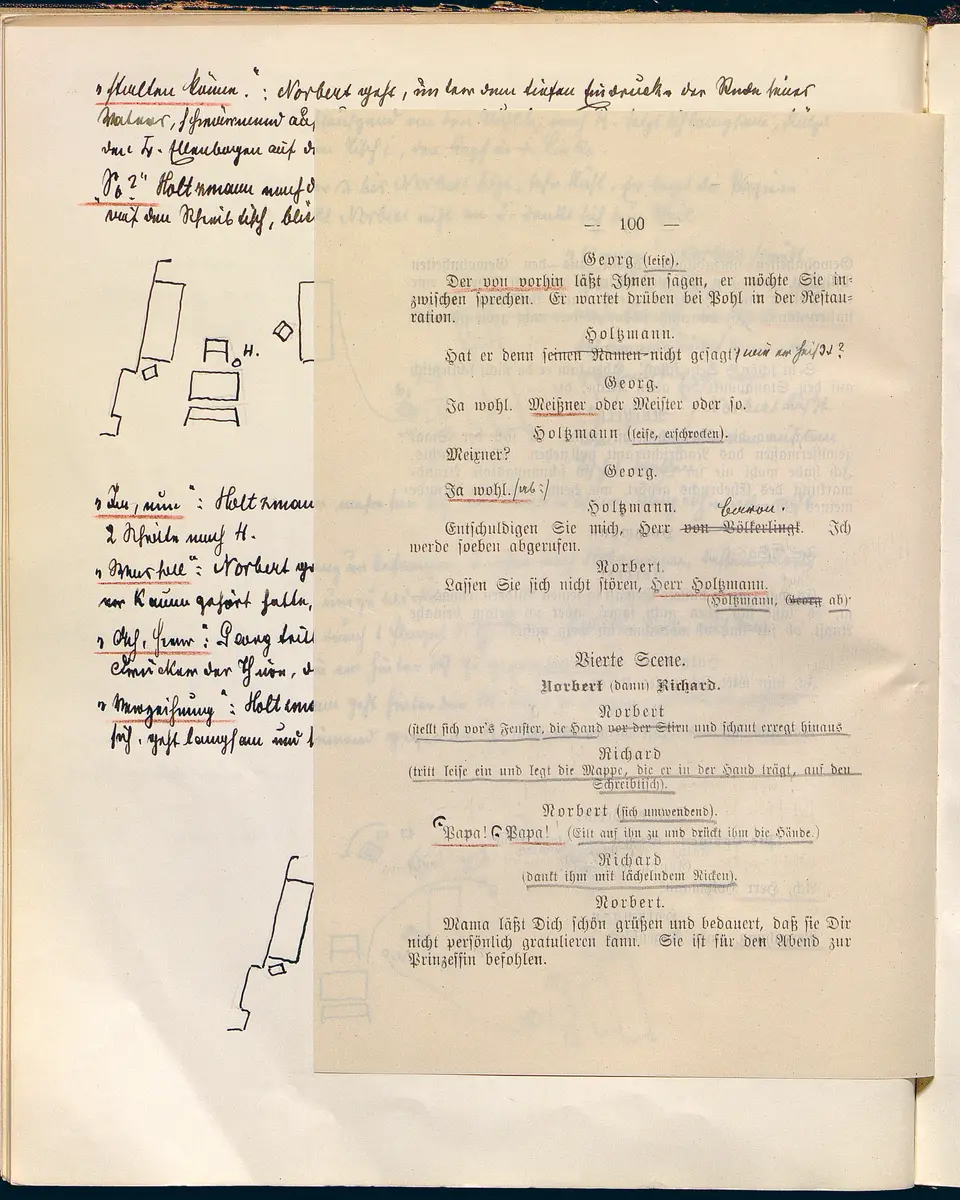 „stalten könne.“: Norbert geht, unter dem tiefen Eindrucke der Rede seines
Vaters,
den l. Ellenbogen auf d
„So?“ Holtzmann nach
auf den Schreibtisch,
H.
„Ja, nun“: Holtzmann
2 Schritte nach H.
Norbert
er kaum gehört hatte,
„Ach, Herr“: Georg
Drücken der Thüre, d
„Verzeihung“: Holtzma
sich, geht langsam und
— 100 —
Georg (leise).
Der von vorhin läßt Ihnen sagen, er möchte Sie in-
zwischen sprechen. Er wartet drüben bei Pohl in der Restau-
ration.
Holtzmann.
Hat er denn seinen Namen nicht gesagt, wie er heißt?
Georg.
Ja wohl. Meißner oder Meister oder so.
Holtzmann (leise, erschrocken).
Meixner?
Georg.
Ja wohl. /ab:/
Holtzmann.
Baron.
Entschuldigen Sie mich, Herr von Völkerlingk. Ich
werde soeben abgerufen.
Norbert.
Lassen Sie sich nicht stören, Herr Holtzmann.
(Holtzmann, Georg ab)
Vierte Scene.
Norbert (dann) Richard.
Norbert
(stellt sich vor's Fenster, die Hand vor der Stirn und schaut erregt hinaus
Richard
(tritt leise ein und legt die Mappe, die er in der Hand trägt, auf den
Schreibtisch).
Norbert (sich umwendend).
Papa! Papa! (Eilt auf ihn zu und drückt ihm die Hände.)
Richard
(dankt ihm mit lächelndem Nicken).
Norbert.
Mama läßt Dich schön grüßen und bedauert, daß sie Dir
nicht persönlich gratulieren kann. Sie ist für den Abend zur
Prinzessin befohlen.